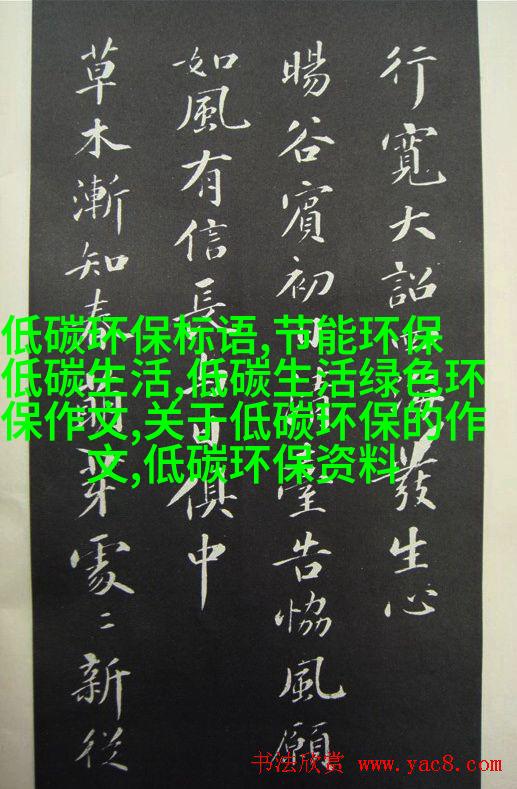 行寬大詔四海發生心
暘谷賓初日清臺告協風願
如風有信長與日俱中
草木漸知春萌芽處〻新從
低碳环保标语,节能环保
低碳生活,低碳生活绿色环
保作文,关于低碳环保的作
文,低碳环保资料
书法欣赏 www.yac8.com